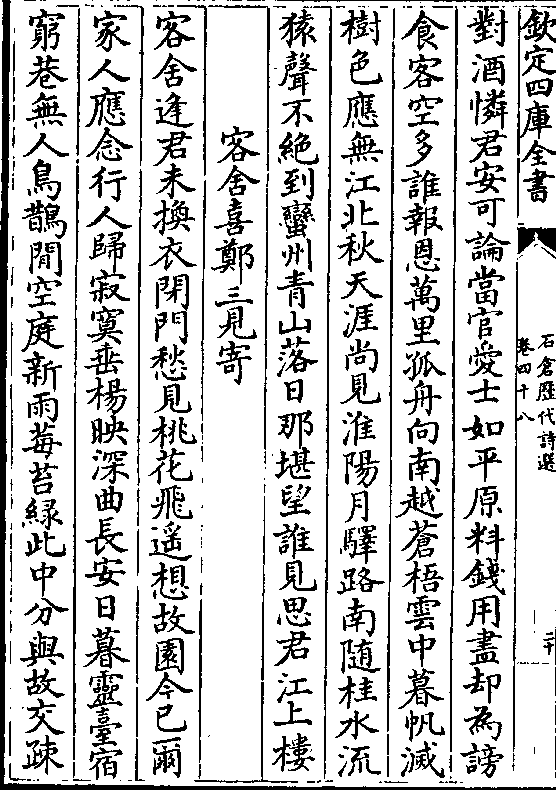 欽定四庫全書
石倉歷代詩選
卷四十八
二十
對酒憐君安可論當官愛士如平原料錢用盡却為謗
食客空多誰報恩萬里孤舟向南越蒼梧雲中暮帆滅
樹色應無江北秋天涯尚見淮陽月驛路南隨桂水流
猿聲不絕到蠻州青山落日那堪望誰見思君江上樓
客舍喜鄭三見寄
客舍逢君未換衣閉門愁見桃花飛遥想故園今已爾
家人應念行人歸寂寞垂楊映深曲長安日暮靈臺宿
窮巷無人鳥鵲閒空庭新雨莓苔緑此中分與故交疎